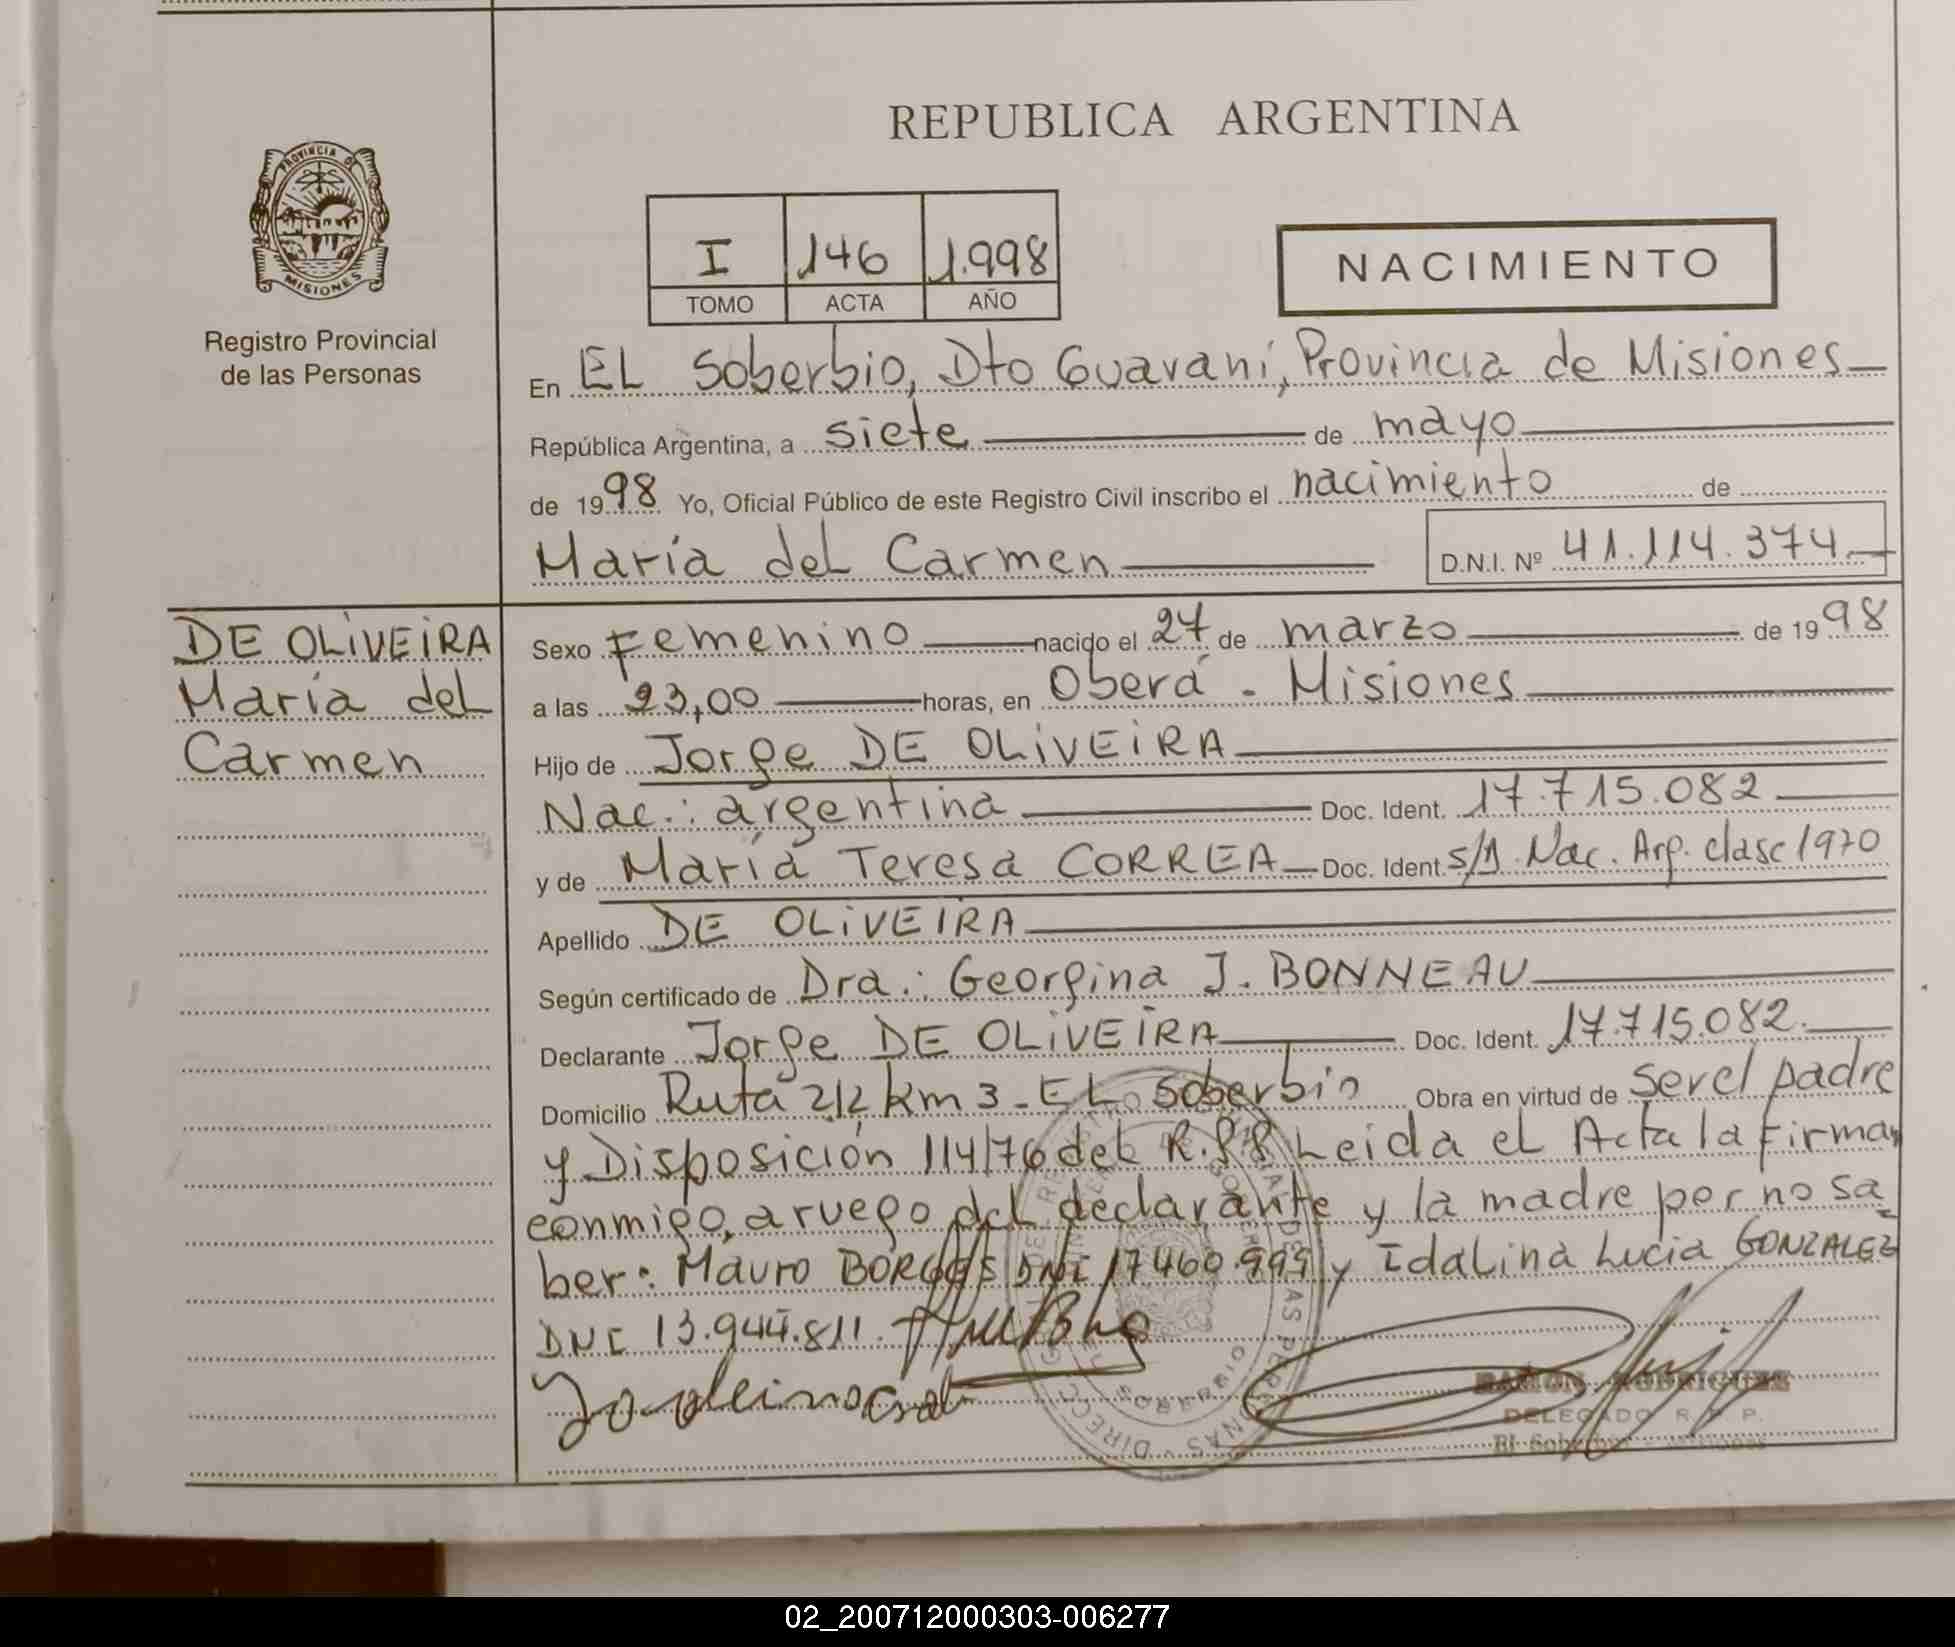 REPUBLICA ARGENTINA
PROVINCIA DE
MISIONES
Registro Provincial
de las Personas
I 146 1.998
TOMO ACTA AÑO
NACIMIENTO
En EL Soberbio, Dto Guaraní, Provincia de Misiones
República Argentina, a siete de mayo
de 1998 Yo, Oficial Público de este Registro Civil inscribo el nacimiento de
María del Carmen D.N.I. Nº 41.114.374
DE OLIVEIRA
María del
Carmen
Sexo Femenino nacido el 27 de marzo de 1998
a las 23,00 horas, en Oberá - Misiones
Hijo de Jorge DE OLIVEIRA
Nac.: argentina Doc. Ident. 17.715.082
y de María Teresa CORREA Doc. Ident. S/1. Nac. Arg. clase 1970
Apellido DE OLIVEIRA
Según certificado de Dra.: Georgina J. BONNEAU
Declarante Jorge DE OLIVEIRA Doc. Ident. 17.715.082.
Domicilio Ruta 212 km 3 - EL Soberbio Obra en virtud de ser el padre
y Disposición 114/76 del R.PP. Leida el Acta la firman
conmigo, a ruego del declarante y la madre por no sa
ber: Mauro BORGES DNI 17460.999 y Idalina Lucia GONZALEZ
DNI 13.944.811.
RAMON RODRIGUEZ
DELEGADO R. P. P.
El Soberbio - Misiones
02_200712000303-006277